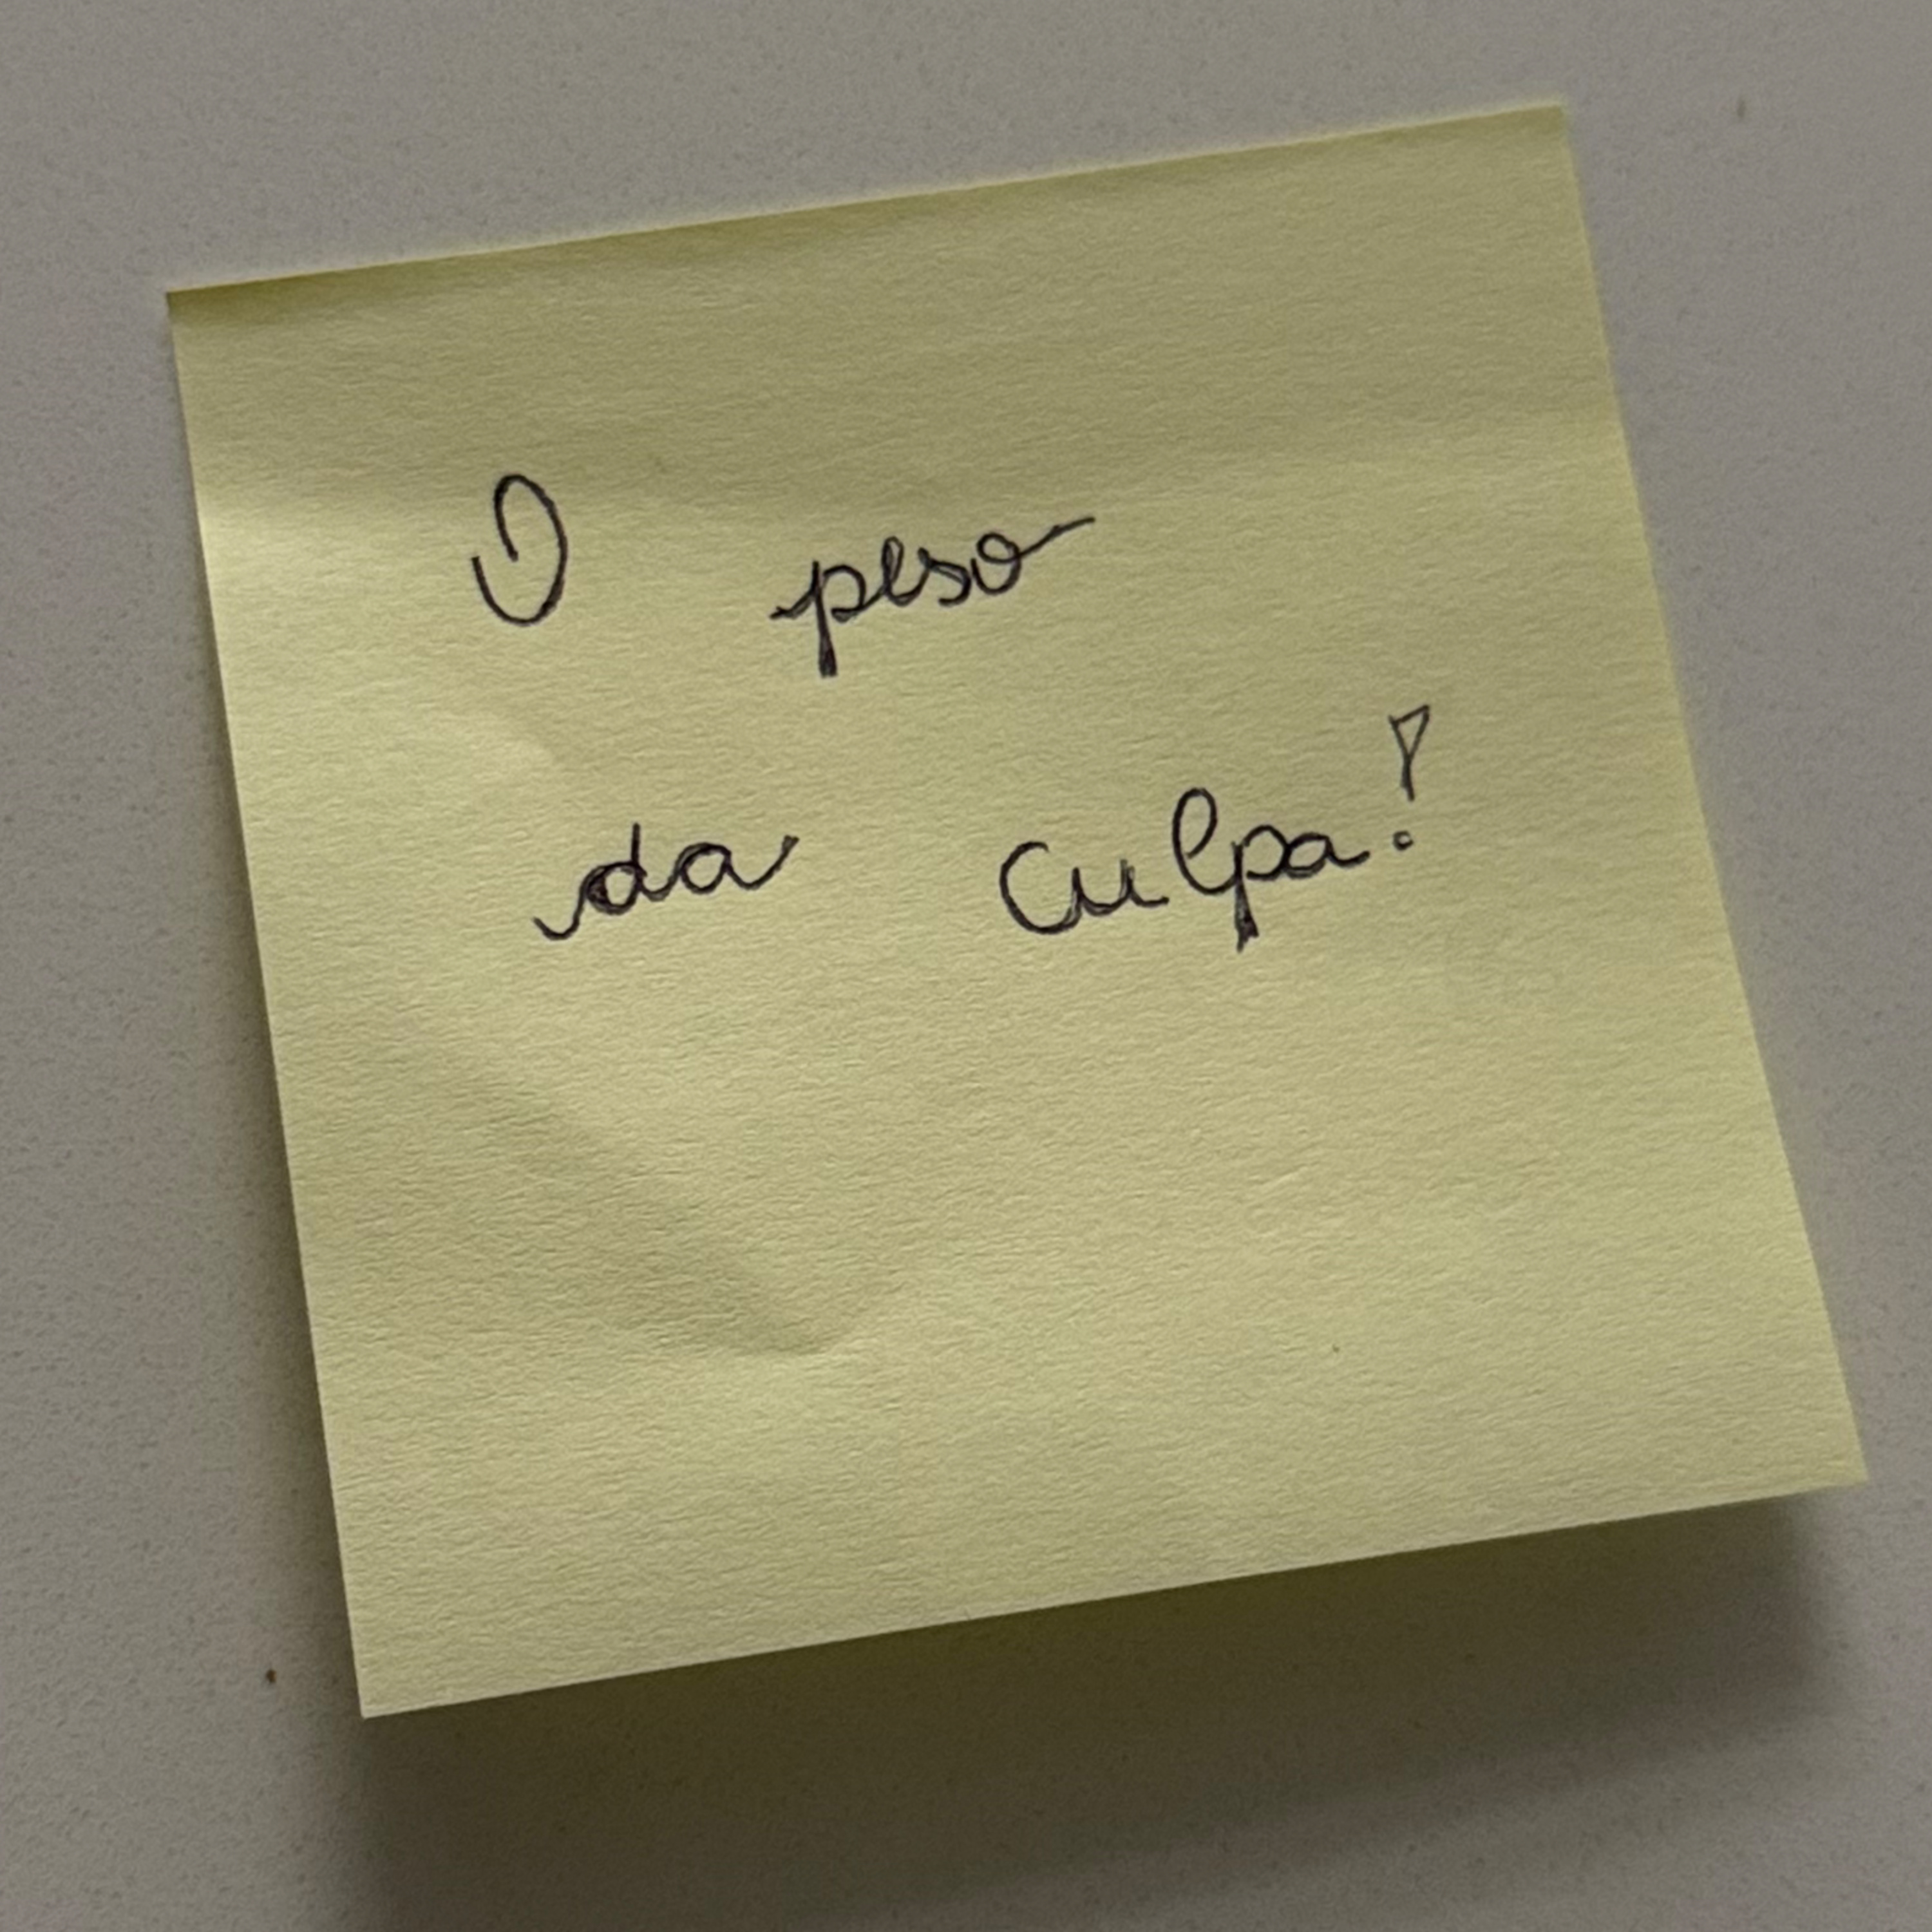 O peso
da culpa!